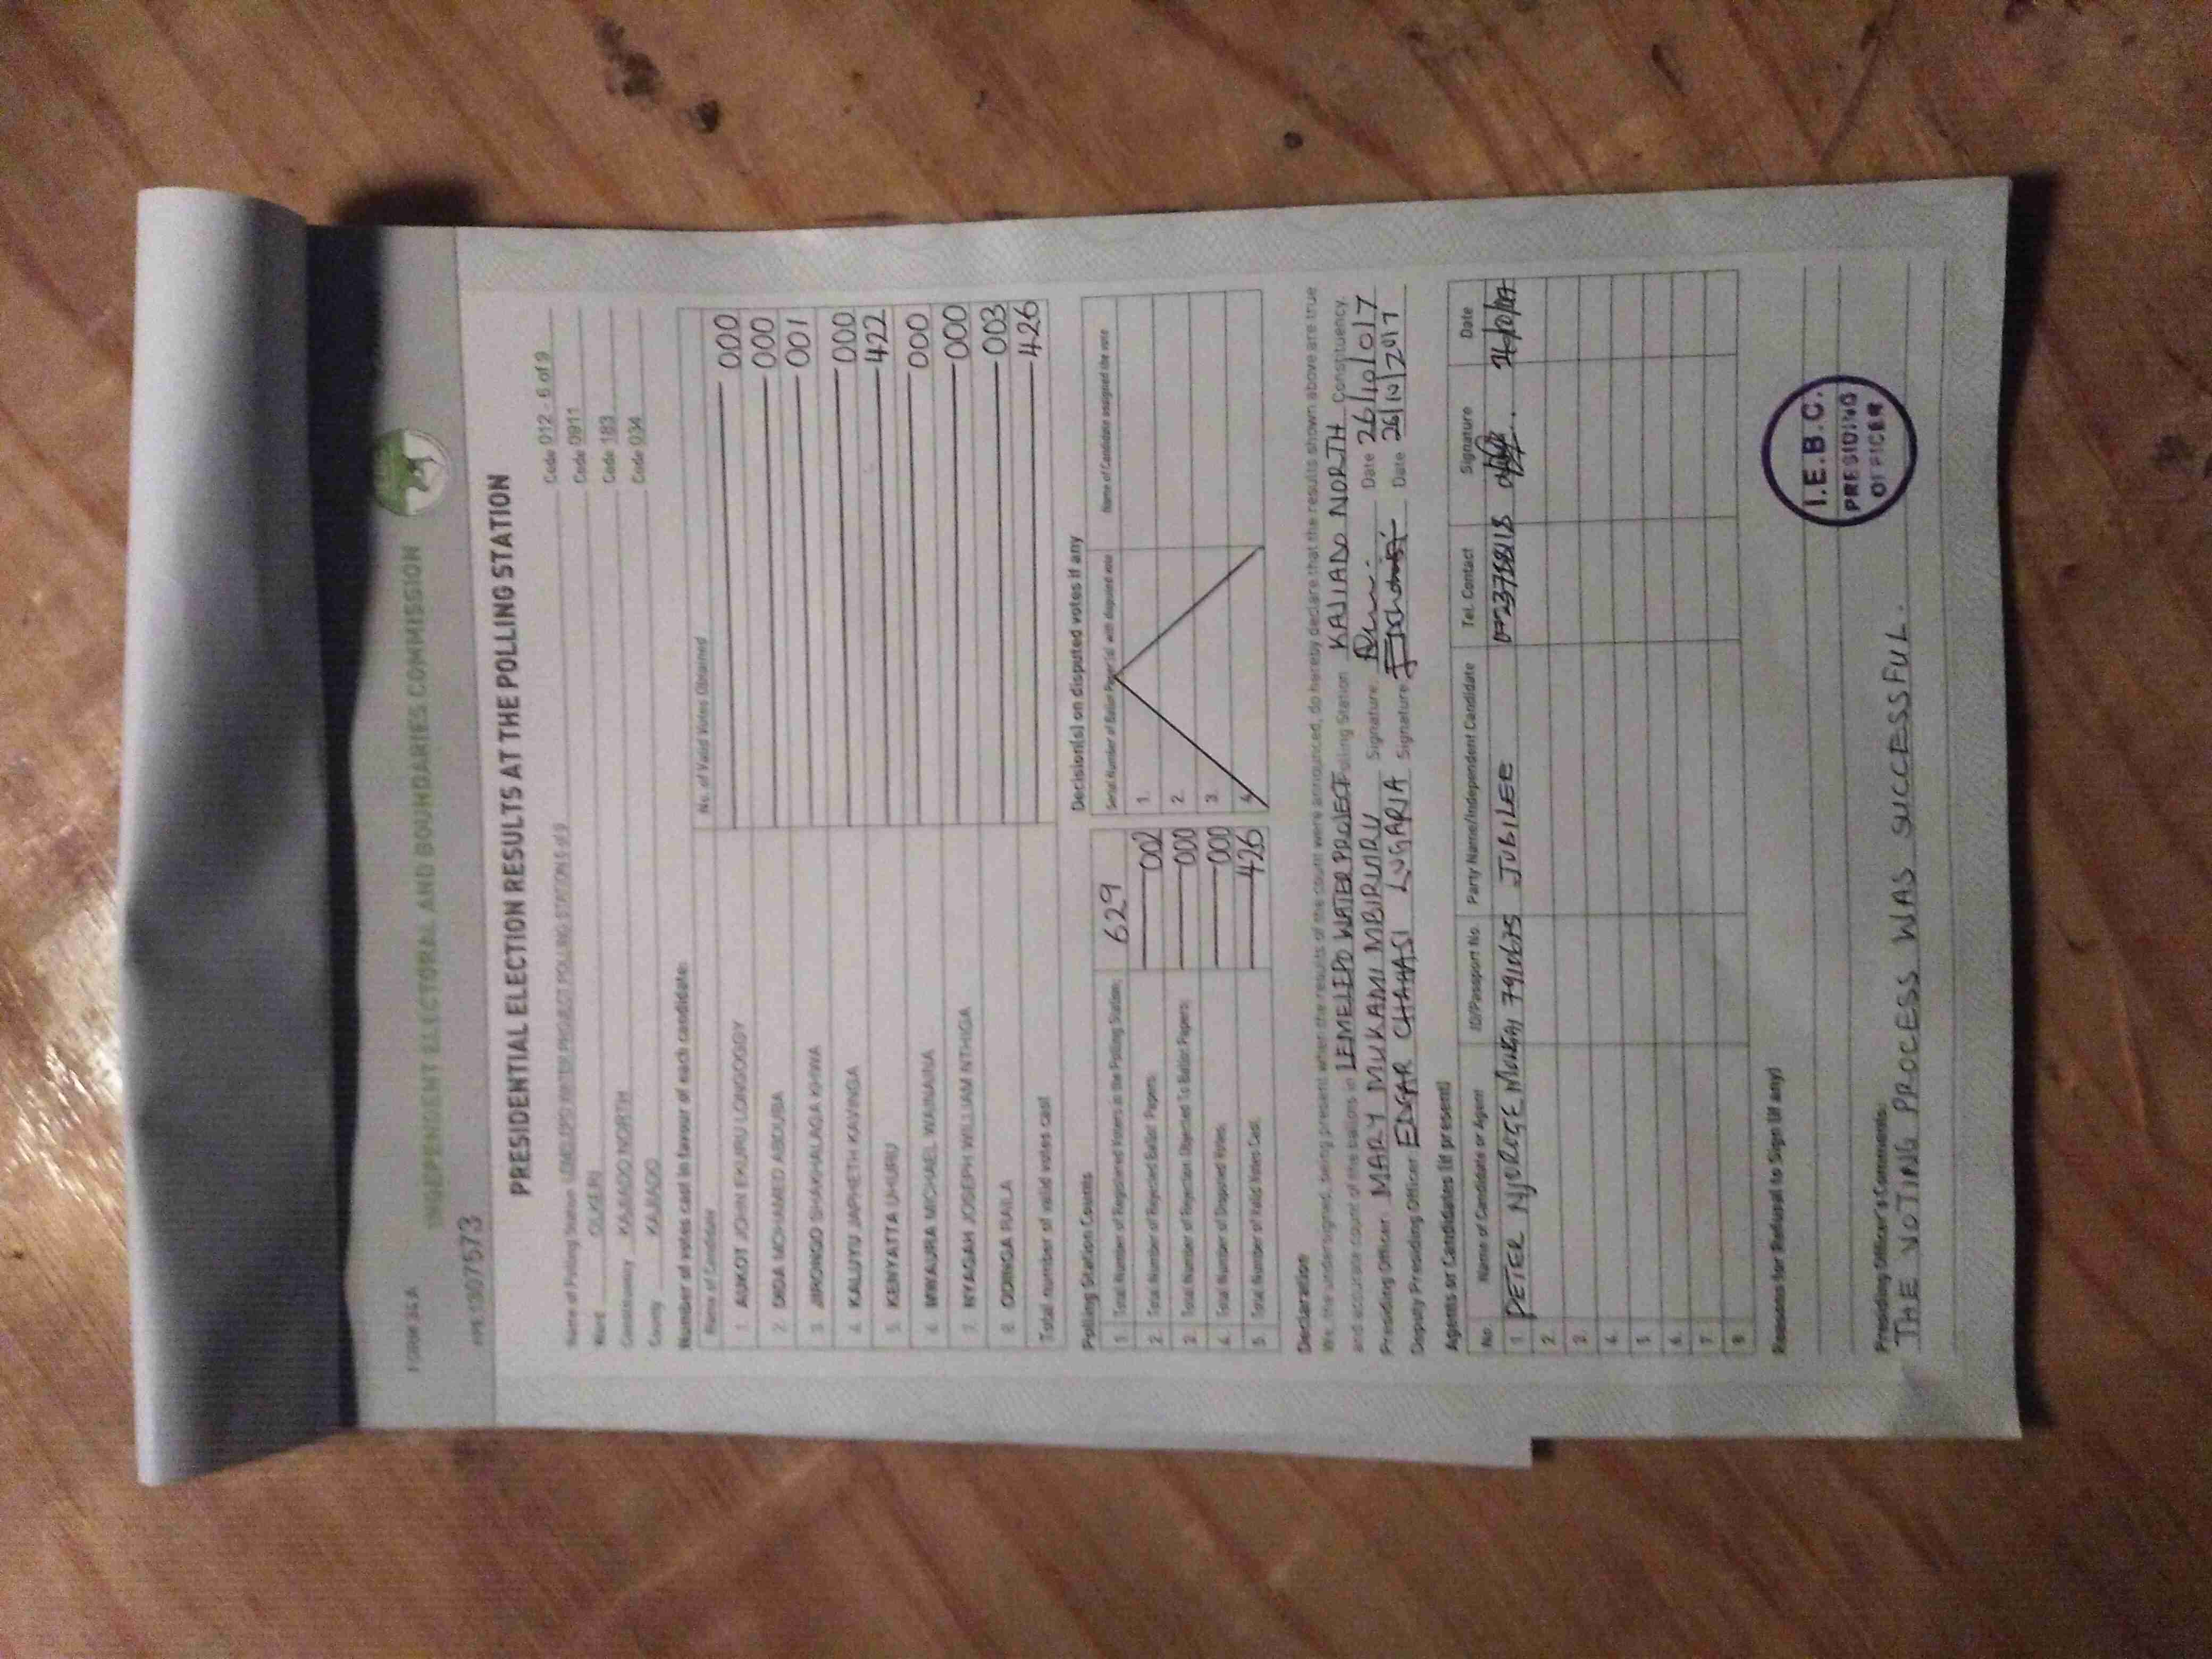 FORM 34A
INDEPENDENT ELECTORAL AND BOUNDARIES COMMISSION
PRESIDENTIAL ELECTION RESULTS AT THE POLLING STATION
Name of Polling Station LEMELEPO WATER PROJECT POLLING STATION 6 of 9 Code 012 - 6 of 9
Ward OLKERI Code 0911
Constituency KAJIADO NORTH Code 183
County KAJIADO Code 034
Number of votes cast in favour of each candidate:
Name of Candidate No. of Valid Votes Obtained
1. AUKOT JOHN EKURU LONGOGGY 000
2. DIDA MOHAMED ABDUBA 000
3. JIRONGO SHAKHALAGA KHWA 001
4. KALUYU JAPHETH KAVINGA 000
5. KENYATTA UHURU 422
6. MWAURA MICHAEL WAINAINA 000
7. NYAGAH JOSEPH WILLIAM NTHIGA 000
8. ODINGA RAILA 003
Total number of valid votes cast 426
Polling Station Counts
1. Total Number of Registered Voters in the Polling Station; 629
2. Total Number of Rejected Ballot Papers; 002
3. Total Number of Rejection Objected To Ballot Papers; 000
4. Total Number of Disputed Votes; 000
5. Total Number of Valid Votes Cast; 426
Decision(s) on disputed votes if any
Serial Number of Ballot Paper(s) with disputed vote Name of Candidate assigned the vote
1.
2.
3.
4.
Declaration
We, the undersigned, being present when the results of the count were announced, do hereby declare that the results shown above are true
and accurate count of the ballots in LEMELEPO WATER PROJECT Polling Station KAJIADO NORTH Constituency.
Presiding Officer: MARY MUKAMI MBIRURU Signature Date 26/10/017
Deputy Presiding Officer EDGAR CHAHASI LUGARIA Signature Date 26/10/2017
Agents or Candidates (if present)
No. Name of Candidate or Agent ID/Passport No. Party Name/Independent Candidate Tel. Contact Signature Date
1. PETER NJOROGE JUBILEE
2.
3.
4.
5.
6.
7.
8.
Reasons for Refusal to Sign (if any)
I.E.B.C.
PRESIDING
OFFICER
Presiding Officer's Comments:
THE VOTING PROCESS WAS SUCCESSFUL.